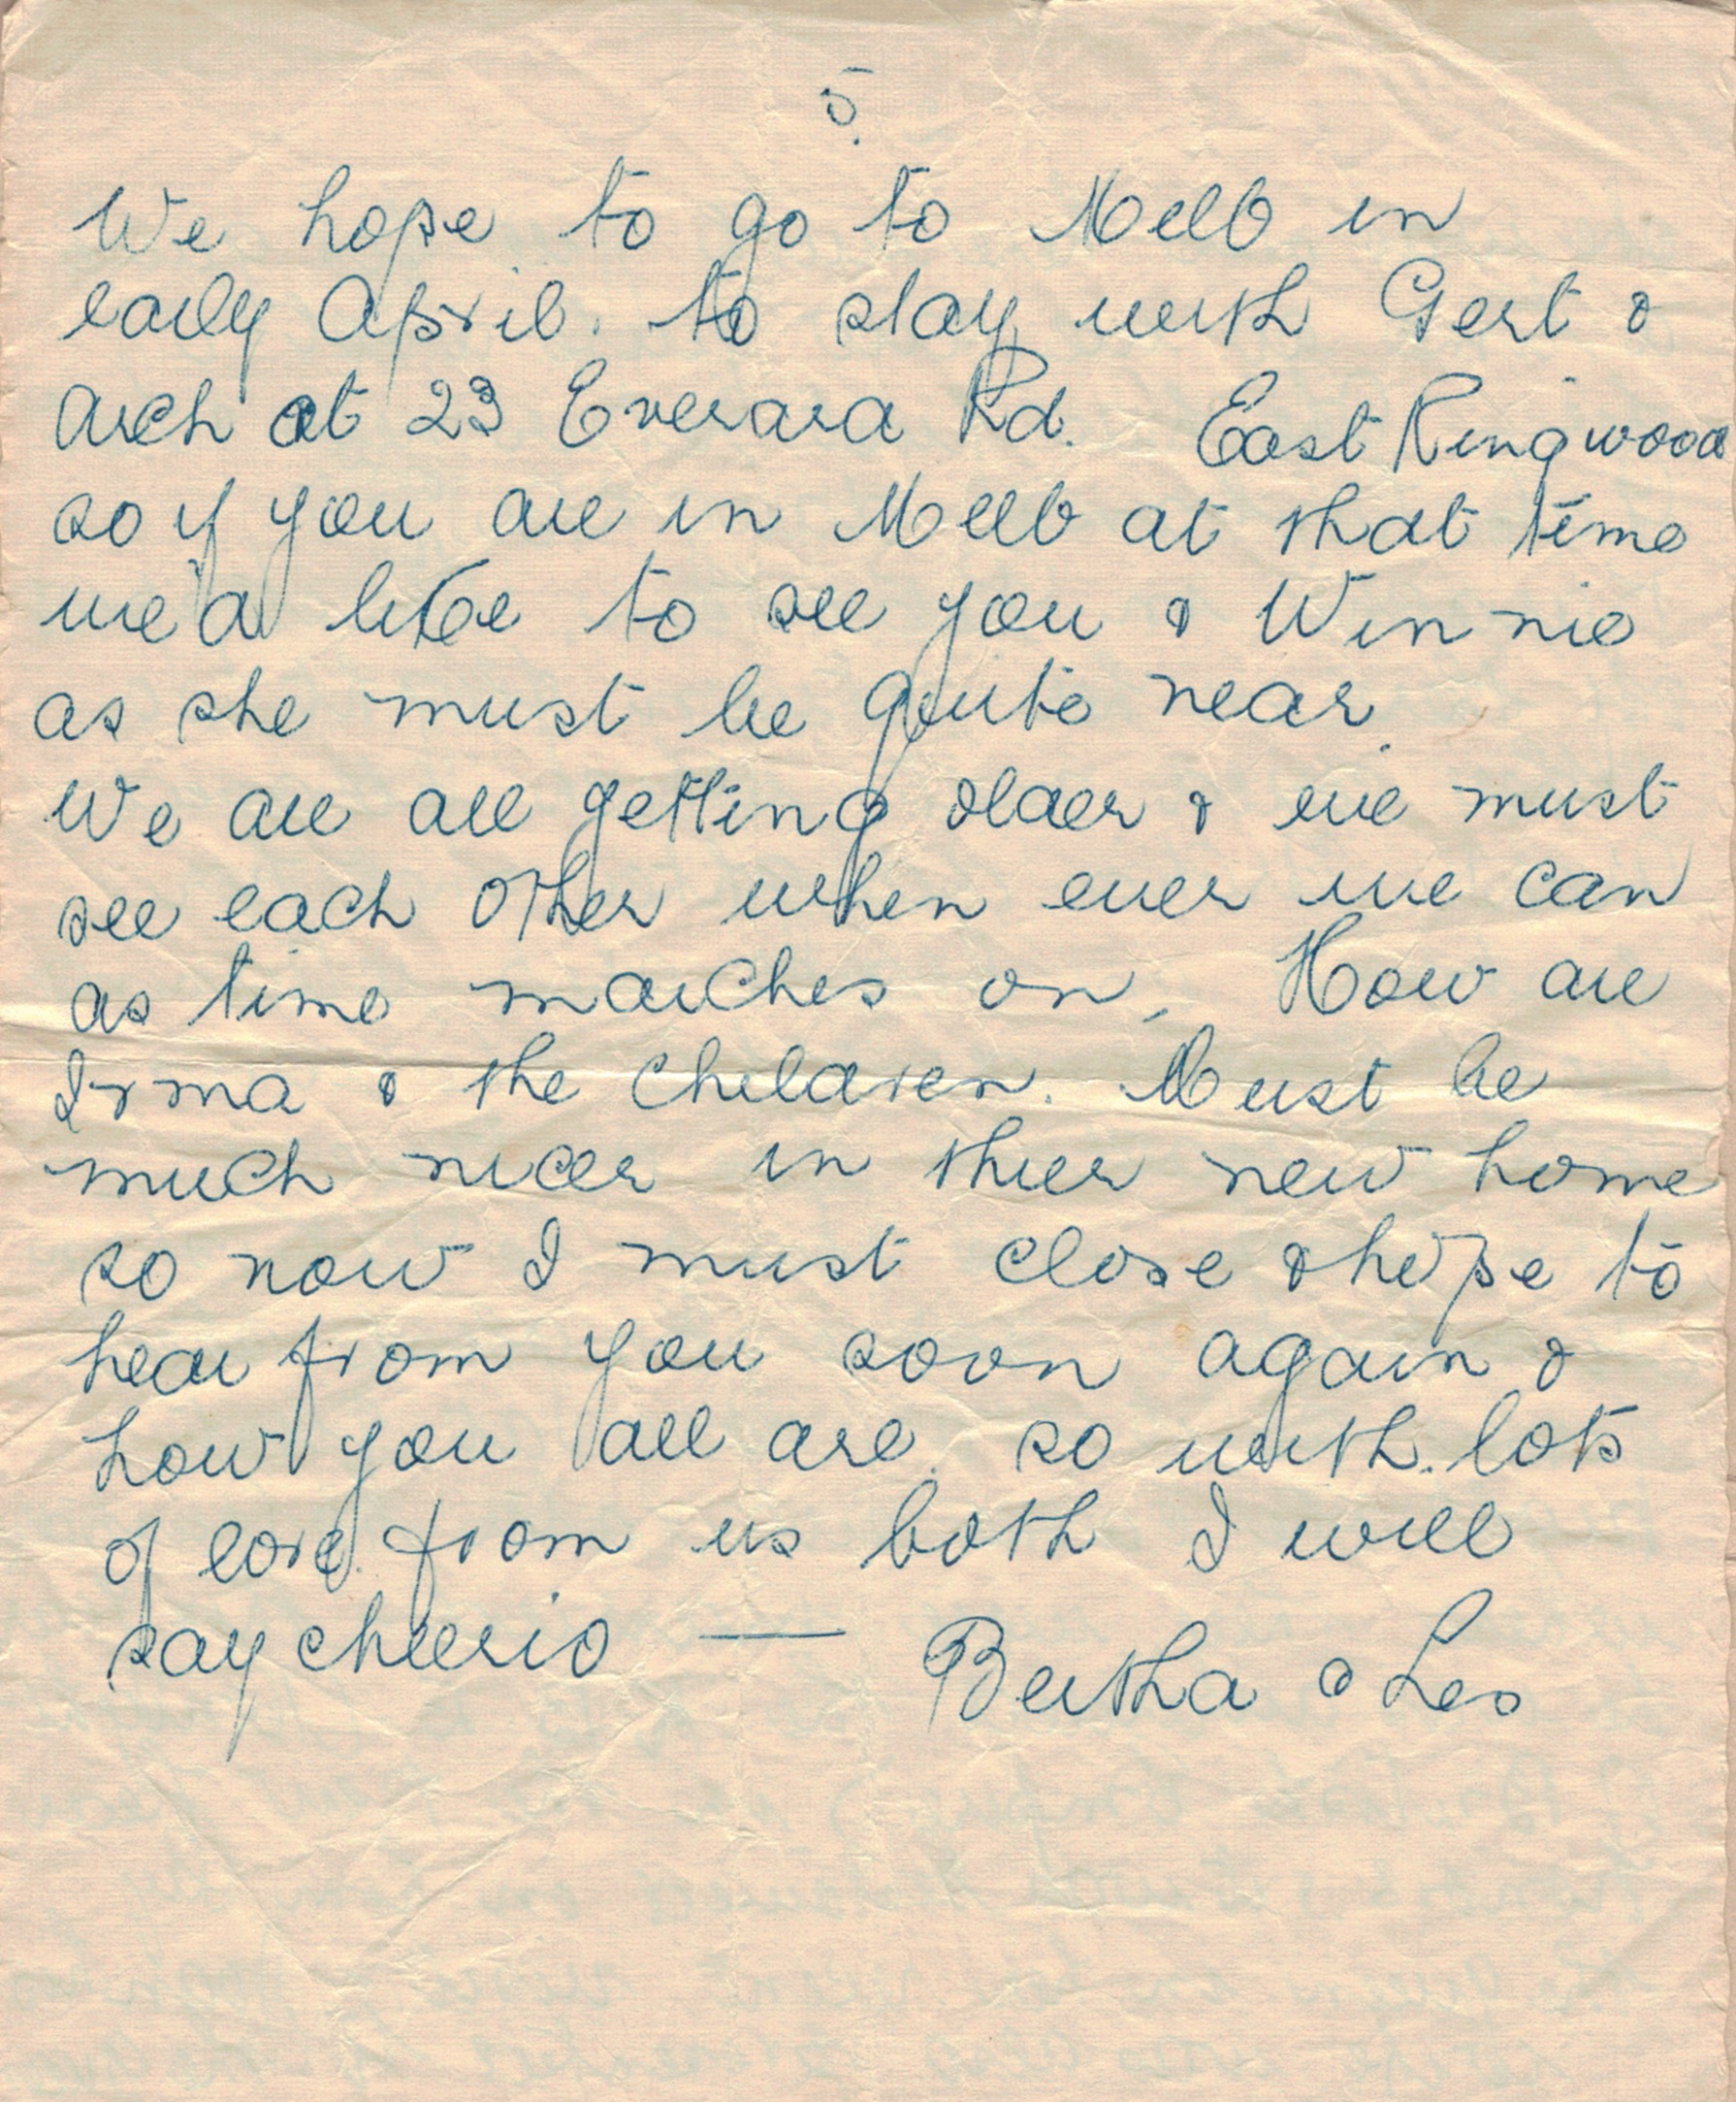 5.
We hope to go to Melb in
early April. to stay with Gert &
Arch at 23 Everard Rd. East Ringwood
so if you are in Melb at that time
we'd like to see you & Winnie
as she must be quite near.
We are all getting older & we must
see each other when ever we can
as time marches on, How are
Irma & the children. Must be
much nicer in thier new home
so now I must close & hope to
hear from you soon again &
how you all are. so with lots
of love from us both I will
say cheerio — Bertha & Les